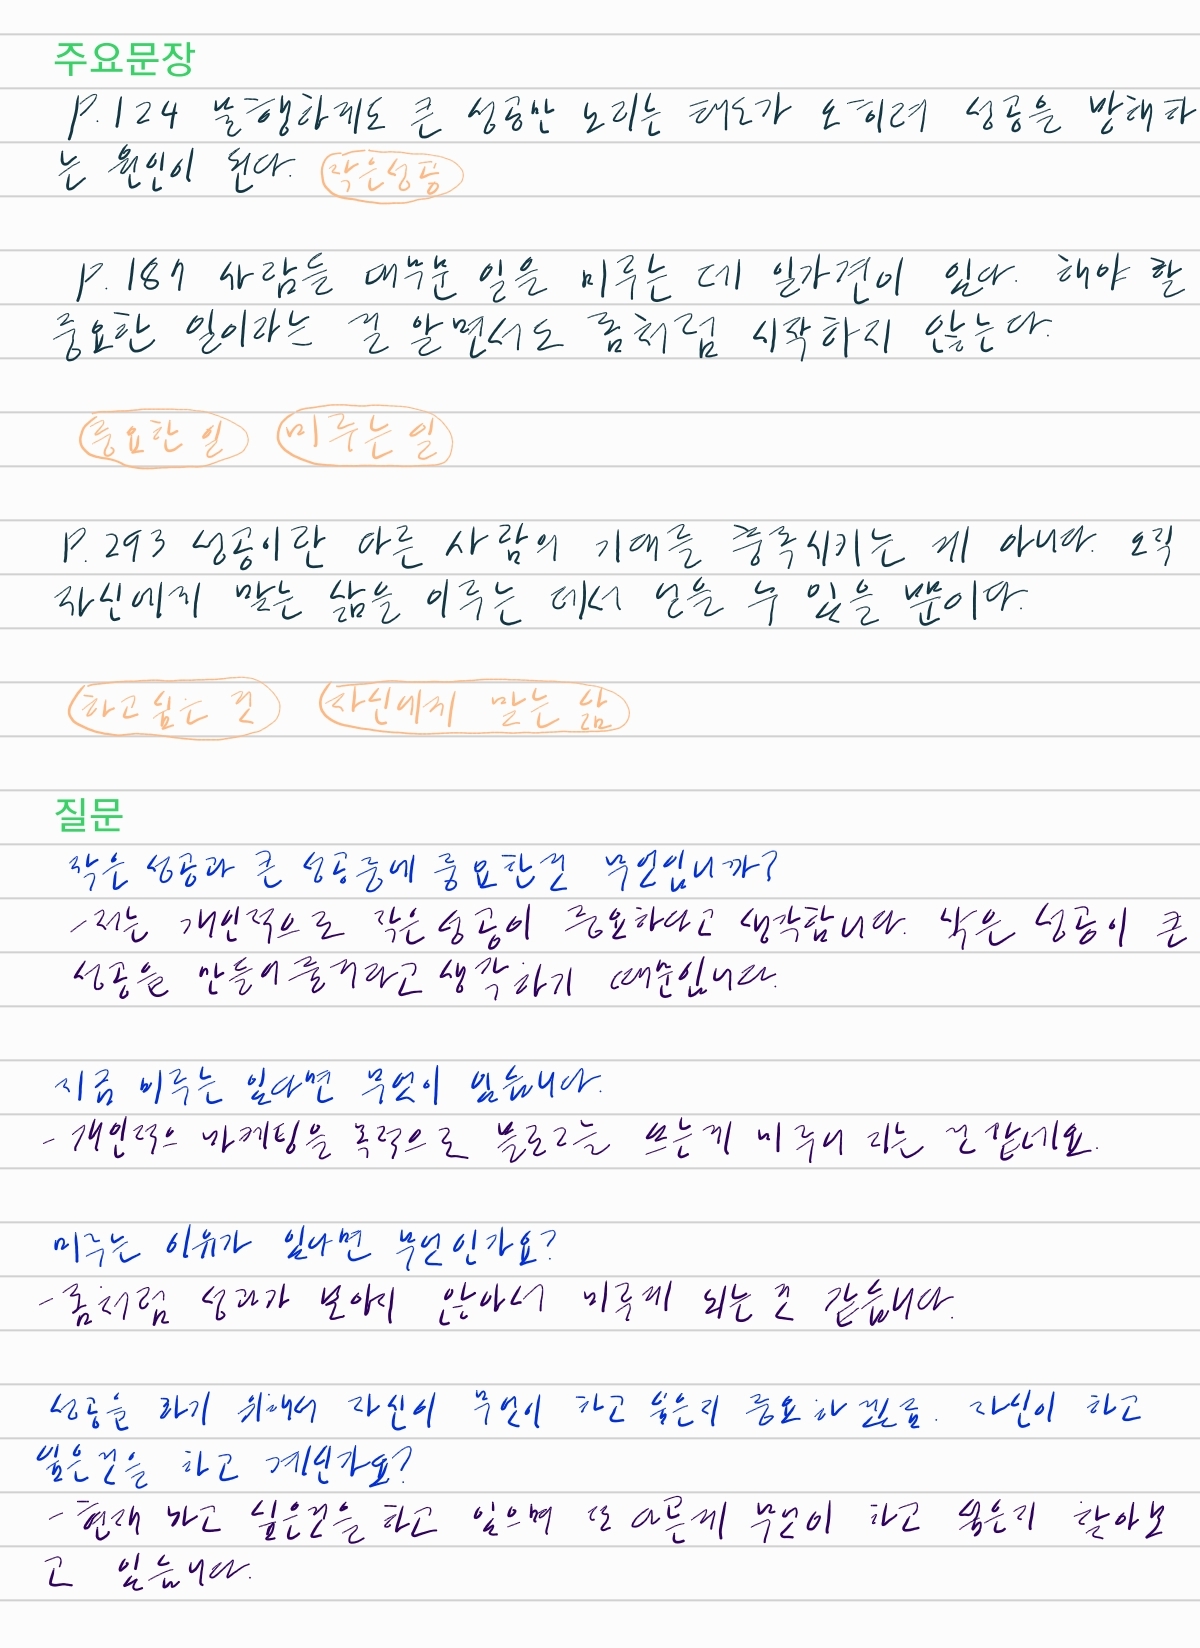 주요문장
P.124 불행하게도 큰 성공만 노리는 태도가 오히려 성공을 방해하
는 원인이 된다. 작은성공
P.187 사람들 대부분 일을 미루는 데 일가견이 있다. 해야 할
중요한 일이라는 걸 알면서도 좀처럼 시작하지 않는다.
중요한 일 미루는 일
P.293 성공이란 다른 사람의 기대를 충족시키는 게 아니다. 오직
자신에게 맞는 삶을 이루는 데서 얻을 수 있을 뿐이다.
하고싶은 것 자신에게 맞는 삶
질문
작은 성공과 큰 성공중에 중요한건 무엇입니까?
- 저는 개인적으로 작은성공이 중요하다고 생각합니다. 작은 성공이 큰
성공을 만들어줄거라고 생각하기 때문입니다.
지금 미루는 일다면 무엇이 있습니다.
- 개인적으 마케팅을 목적으로 블로그를 쓰는게 미루니 되는 것 같네요.
미루는 이유가 있다면 무엇인가요?
- 좀처럼 성과가 보이지 않아서 미루게 되는 것 같습니다.
성공을 하기 위해서 자신이 무엇이 하고 싶은지 중요하겠는데. 자신이 하고
싶은것을 하고 계신가요?
- 현재 하고 싶은것을 하고 있으며 또 다른게 무엇이 하고 싶은지 찾아보
고 있습니다.